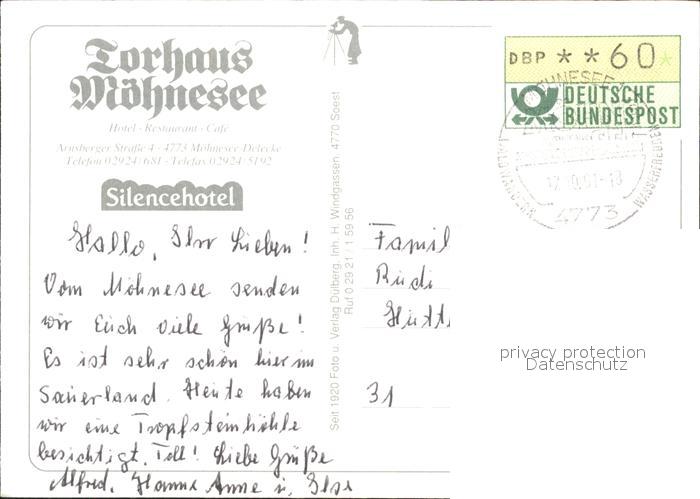 Torhaus
Möhnesee
Hotel · Restaurant · Café
Arnsberger Straße 4 · 4773 Möhnesee-Delecke
Telefon 02924/681 · Telefax 02924/5192
Silencehotel
Hallo, Ihr Lieben!
Vom Möhnesee senden
wir Euch viele Grüße!
Es ist sehr schön hier im
Sauerland. Heute haben
wir eine Tropfsteinhöhle
besichtigt. Toll! Liebe Grüße
Alfred, Hanna Anne u. Ilse
Seit 1920 Foto u. Verlag Dülberg. Inh. H. Windgassen. 4770 Soest
Ruf 0 29 21 / 1 59 56
DBP ** 60*
DEUTSCHE
BUNDESPOST
MÖHNESEE
WALDWANDERN
WASSERFREUDEN
4773
Famil
Rudi
Hütt
31
privacy protection
Datenschutz